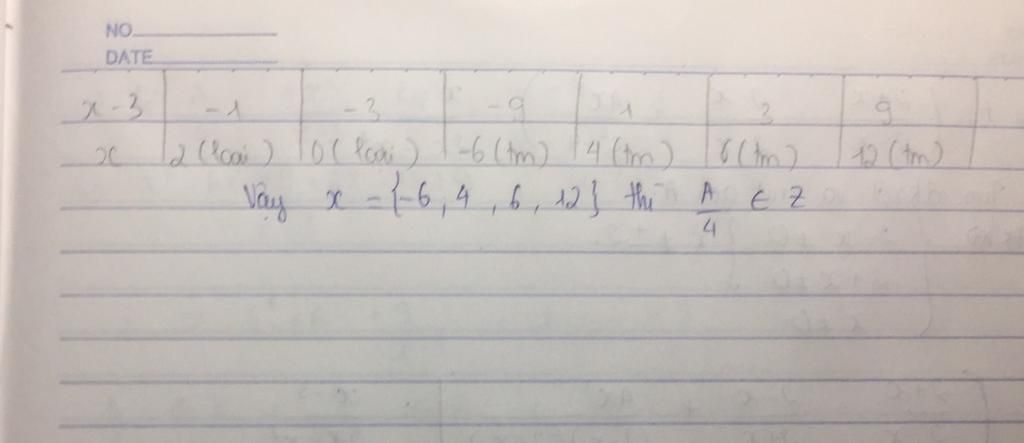 NO
DATE
x - 3 -1 -3 -9 1 3 9
x 2 (loại) 0 (loại) -6 (tm) 4 (tm) 6 (tm) 12 (tm)
Vậy x = {-6, 4, 6, 12} thì A/4 ∈ Z